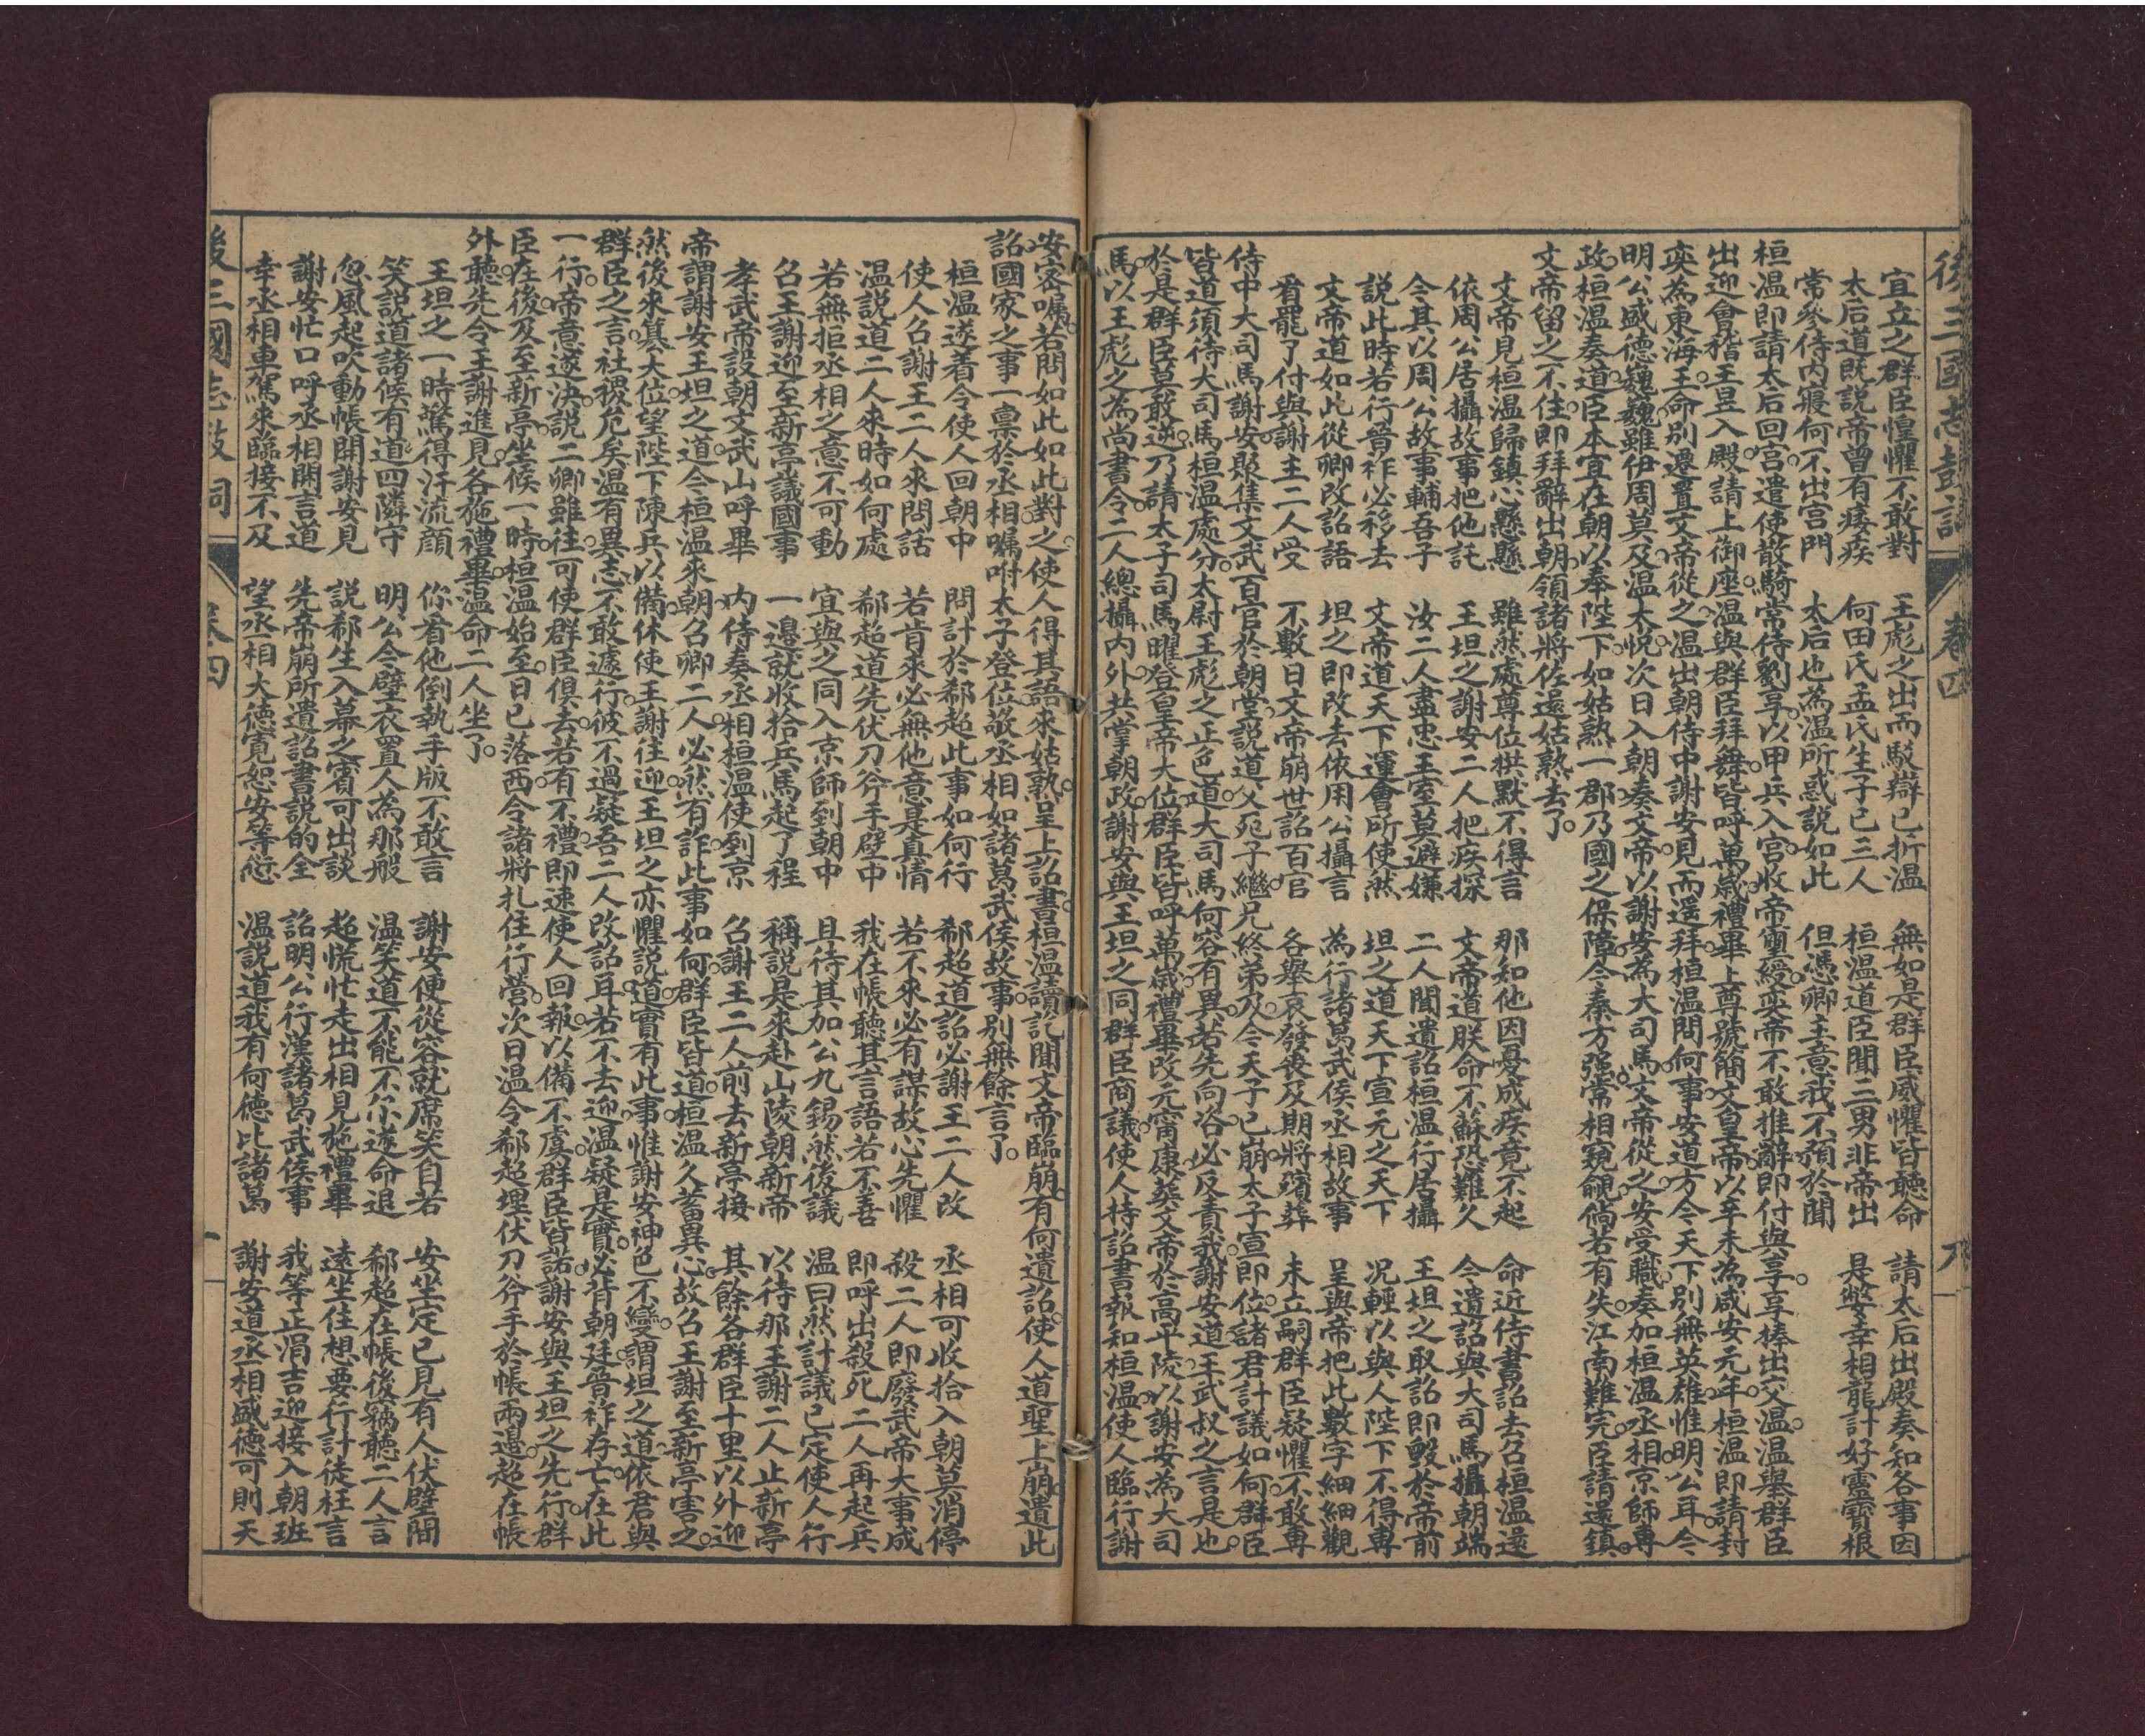 後三國志鼓詞 卷四 九
宜立之群臣惶懼不敢對 王彪之出而駁辯已折溫 無如是群臣威懼皆聽命 請太后出殿奏知各事因
太后道既說帝曾有痿疾 何田氏孟氏生子已三人 桓溫道臣聞三男非帝出 是嬖幸相龍計好靈寶根
常參侍內寢何不出宮門 太后也為溫所惑說如此 但憑卿主意我不預於聞
桓溫即請太后回宮遣使散騎常侍劉享以甲兵入宮收帝璽綬奕帝不敢推辭即付與享享捧出交溫溫舉群臣
出迎會稽王昱入殿請上御座溫與群臣拜舞皆呼萬歲禮畢上尊號簡文皇帝以辛未為咸安元年桓溫即請封
奕為東海王命別遷置文帝從之溫出朝侍中謝安見而遥拜桓溫問何事安道方今天下別無英雄惟明公耳今
明公盛德巍巍雖伊周莫及溫大悅次日入朝奏文帝以謝安為大司馬文帝從之安受職奏加桓溫丞相京師專
政桓溫奏道臣本宜在朝以奉陛下如姑熟一郡乃國之保障今秦方强常相窺覦倘若有失江南難完臣請還鎮
文帝留之不住即拜辭出朝領諸將佐還姑熟去了
文帝見桓溫歸鎮心懸懸 雖然處尊位拱默不得言 那知他因憂成疾竟不起 命近侍書詔去召桓溫還
依周公居攝故事把他託 王坦之謝安二人把疾探 文帝道朕命不蘇恐難久 今遺詔與大司馬攝朝端
令其以周公故事輔吾子 汝二人盡忠王室莫避嫌 二人聞遺詔桓溫行居攝 王坦之取詔即毀於帝前
說此時若行晉祚必移去 文帝道天下運會所使然 坦之道天下宣元之天下 况輕以與人陛下不得專
文帝道如此從卿改詔語 坦之即改去依用公攝言 為行諸葛武侯丞相故事 呈與帝把此數字細細觀
看罷了付與謝王二人受 不數日文帝崩世詔百官 各舉哀發喪及期將殯葬 未立嗣群臣疑懼不敢專
侍中大司馬謝安聚集文武百官於朝堂說道父死子繼兄終弟及今天子已崩太子宣即位諸君計議如何群臣
皆道須待大司馬桓溫處分太尉王彪之正色道大司馬何容有異若先向咨必反責我謝安道王武叔之言是也
於是群臣莫敢逆乃請太子司馬曜登皇帝大位群臣皆呼萬歲禮畢改元甯康葬文帝於高平陵以謝安為大司
馬以王彪之為尚書令二人總攝內外共掌朝政謝安與王坦之同群臣商議使人持詔書報和桓溫使人臨行謝
安密囑若問如此如此對之使人得其語來姑熟呈上詔書桓溫讀說聞文帝臨崩有何遺詔使人道聖上崩遺此
詔國家之事一禀於丞相囑咐太子登位敬丞相如諸葛武侯故事別無餘言了
桓溫遂着令使人回朝中 問計於郗超此事如何行 郗超道詔必謝王二人改 丞相可收拾入朝莫消停
使人召謝王二人來問話 若肯來必無他意是真情 若不來必有謀故心先懼 殺二人即廢武帝大事成
溫說道二人來時如何處 郗超道先伏刀斧手壁中 我在帳聽其言語若不善 即呼出殺死二人再起兵
若無拒丞相之意不可動 宜與之同入京師到朝中 且待其加公九錫然後議 溫曰然計議已定使人行
召王謝迎至新亭議國事 一邊就收拾兵馬起了程 稱說是來赴山陵朝新帝 以待那王謝二人止新亭
孝武帝設朝文武山呼畢 內侍奏丞相桓溫使到京 召謝王二人前去新亭接 其餘各群臣十里以外迎
帝謂謝安王坦之道今桓溫來朝召卿二人必然有詐此事如何群臣皆道桓溫久蓄異心故召王謝至新亭害之
然後來篡大位望陛下陳兵以備休使王謝往迎王坦之亦懼說道實有此事惟謝安神色不變謂坦之道依君與
群臣之言社稷危矣溫有異志不敢遽行彼不過疑吾二人改詔耳若不去迎溫疑是實必背朝廷晉祚存亡在此
一行帝意遂決說二卿雖往可使群臣俱去若有不禮即速使人回報以備不虞群臣皆諾謝安與王坦之先行群
臣在後及至新亭坐候一時桓溫始至日已落西令諸將札住行營次日溫令郗超埋伏刀斧手於帳兩邊超在帳
外聽先令王謝進見各施禮畢溫命二人坐了
王坦之一時驚得汗流顏 你看他倒執手版不敢言 謝安便從容就席笑自若 安坐定已見有人伏壁間
笑說道諸候有道四隣守 明公今壁衣置人為那般 溫笑道不能不尒遂命退 郗超在帳後竊聽二人言
忽風起吹動帳開謝安見 說郗生入幕之賓可出談 超慌忙走出相見施禮畢 遠坐住想要行計徒枉言
謝安忙口呼丞相開言道 先帝崩所遺詔書說的全 詔明公行漢諸葛武侯事 我等正涓吉迎接入朝班
幸丞相車駕來臨接不及 望丞相大德寬恕安等愆 溫說道我有何德比諸葛 謝安道丞相盛德可則天
後三國志鼓詞 卷四